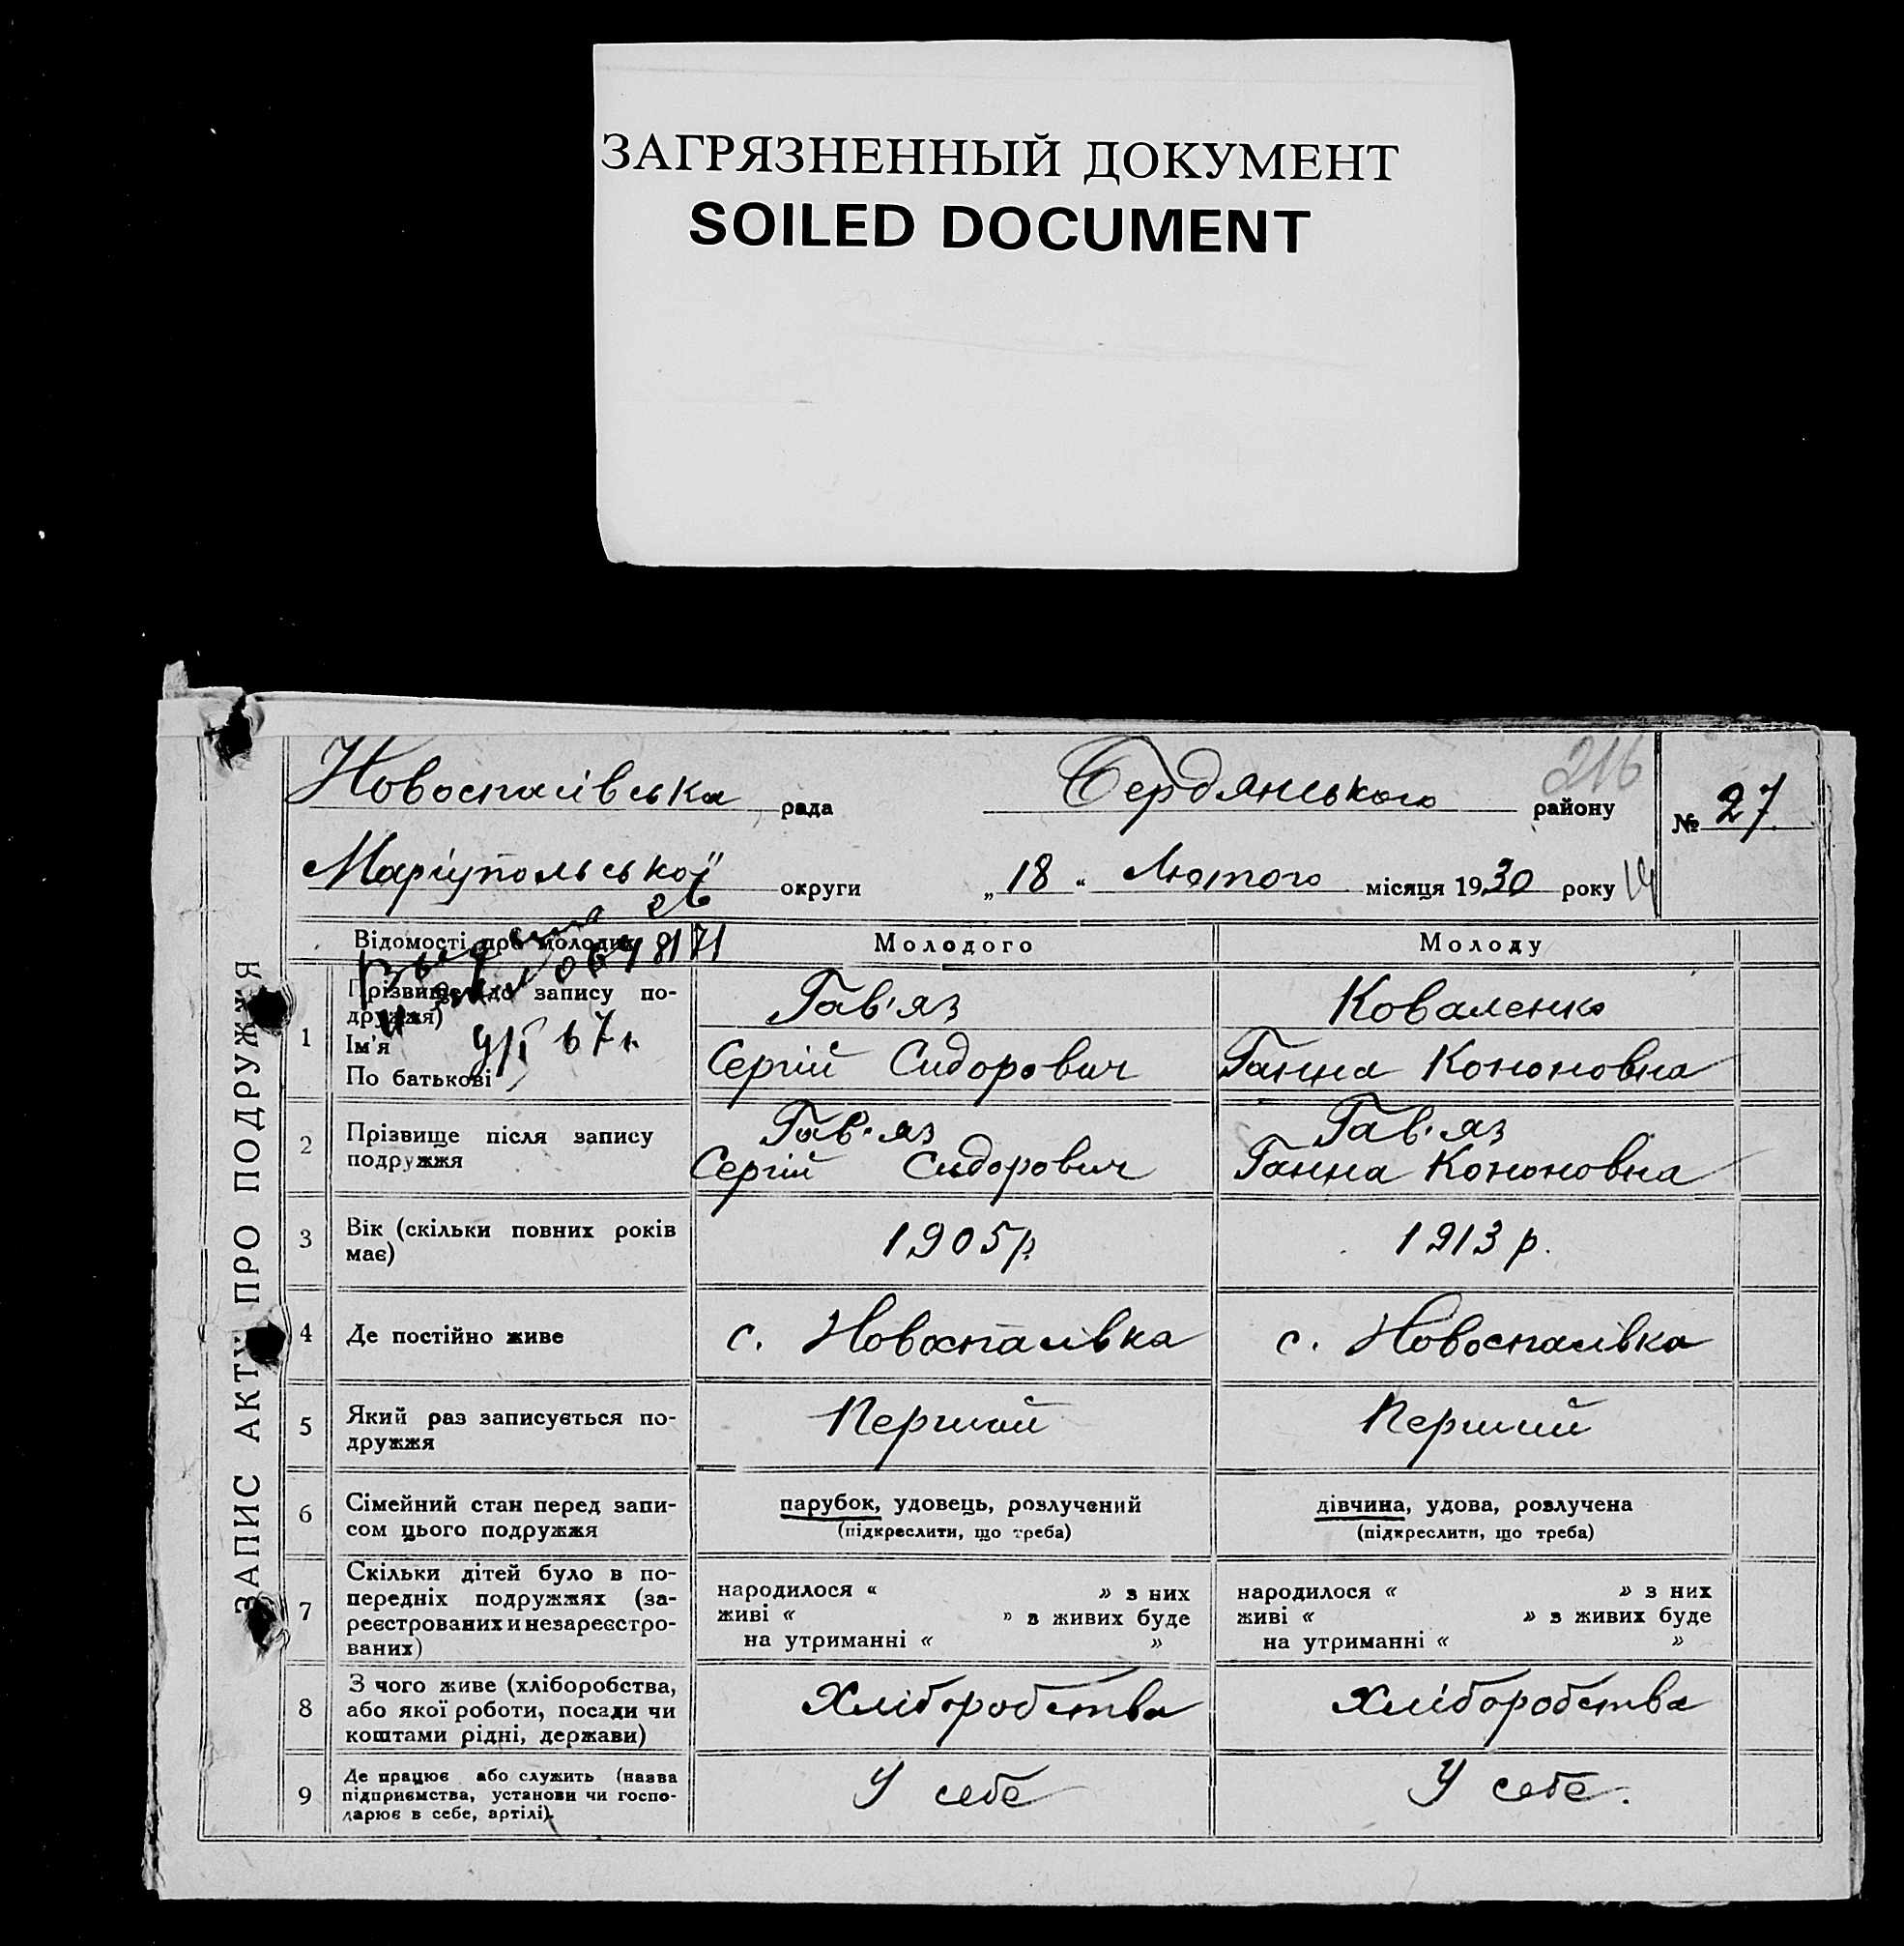 ЗАГРЯЗНЕННЫЙ ДОКУМЕНТ
SOILED DOCUMENT
216
Новоспасівська рада Бердянського району № 27
Маріупольської округи „18“ Лютого місяця 1930 року
ЗАПИС АКТУ ПРО ПОДРУЖЖЯ
26
Відомості про молодих Молодого Молоду
064 8171
1 Прізвище (до запису подружжя) Гав'яз Коваленко
Ім'я
По батькові Сергій Сидорович Ганна Кононовна
67 г.
2 Прізвище після запису подружжя Гав'яз Сергій Сидорович Гав'яз Ганна Кононовна
3 Вік (скільки повних років має) 1905 р. 1913 р.
4 Де постійно живе с. Новоспасівка с. Новоспасівка
5 Який раз записується подружжя Перший Перший
6 Сімейний стан перед записом цього подружжя парубок, удовець, розлучений (підкреслити, що треба) дівчина, удова, розлучена (підкреслити, що треба)
7 Скільки дітей було в попередніх подружжях (зареєстрованих и незареєстрованих) народилося « » з них живі « » з живих буде на утриманні « » народилося « » з них живі « » з живих буде на утриманні « »
8 З чого живе (хліборобства, або якої роботи, посади чи коштами рідні, держави) Хліборобства Хліборобства
9 Де працює або служить (назва підприємства, установи чи господарює в себе, артілі) У себе У себе.